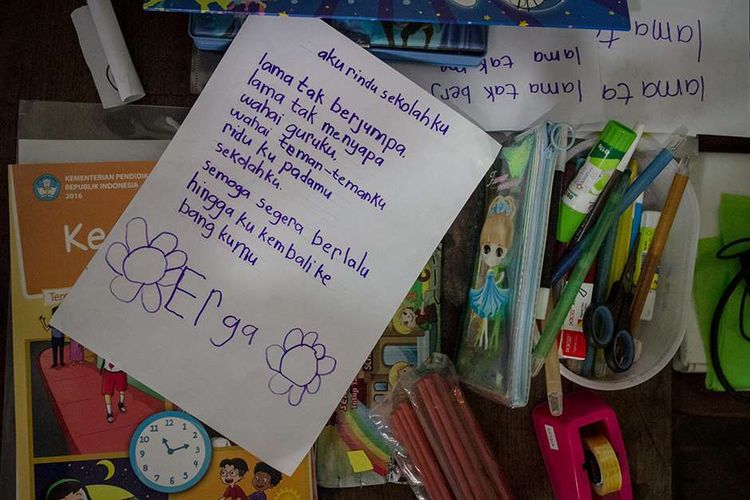 aku rindu sekolahku
lama tak berjumpa.
lama tak menyapa
wahai guruku,
wahai teman-temanku
ridu ku padamu
sekolahku.
semoga segera berlalu
hingga ku kembali ke
bang kumu
Erga
lama t
lama tak
lama ta
lama tak berj
KEMENTERIAN PENDIDIK
REPUBLIK INDONESIA
2016
Ke